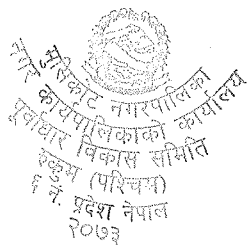 मुसिकोट नगरपालिका
नगर कार्यपालिकाको कार्यालय
पूर्वाधार विकास समिति
रुकुम (पश्चिम)
६ नं. प्रदेश नेपाल
२०७३